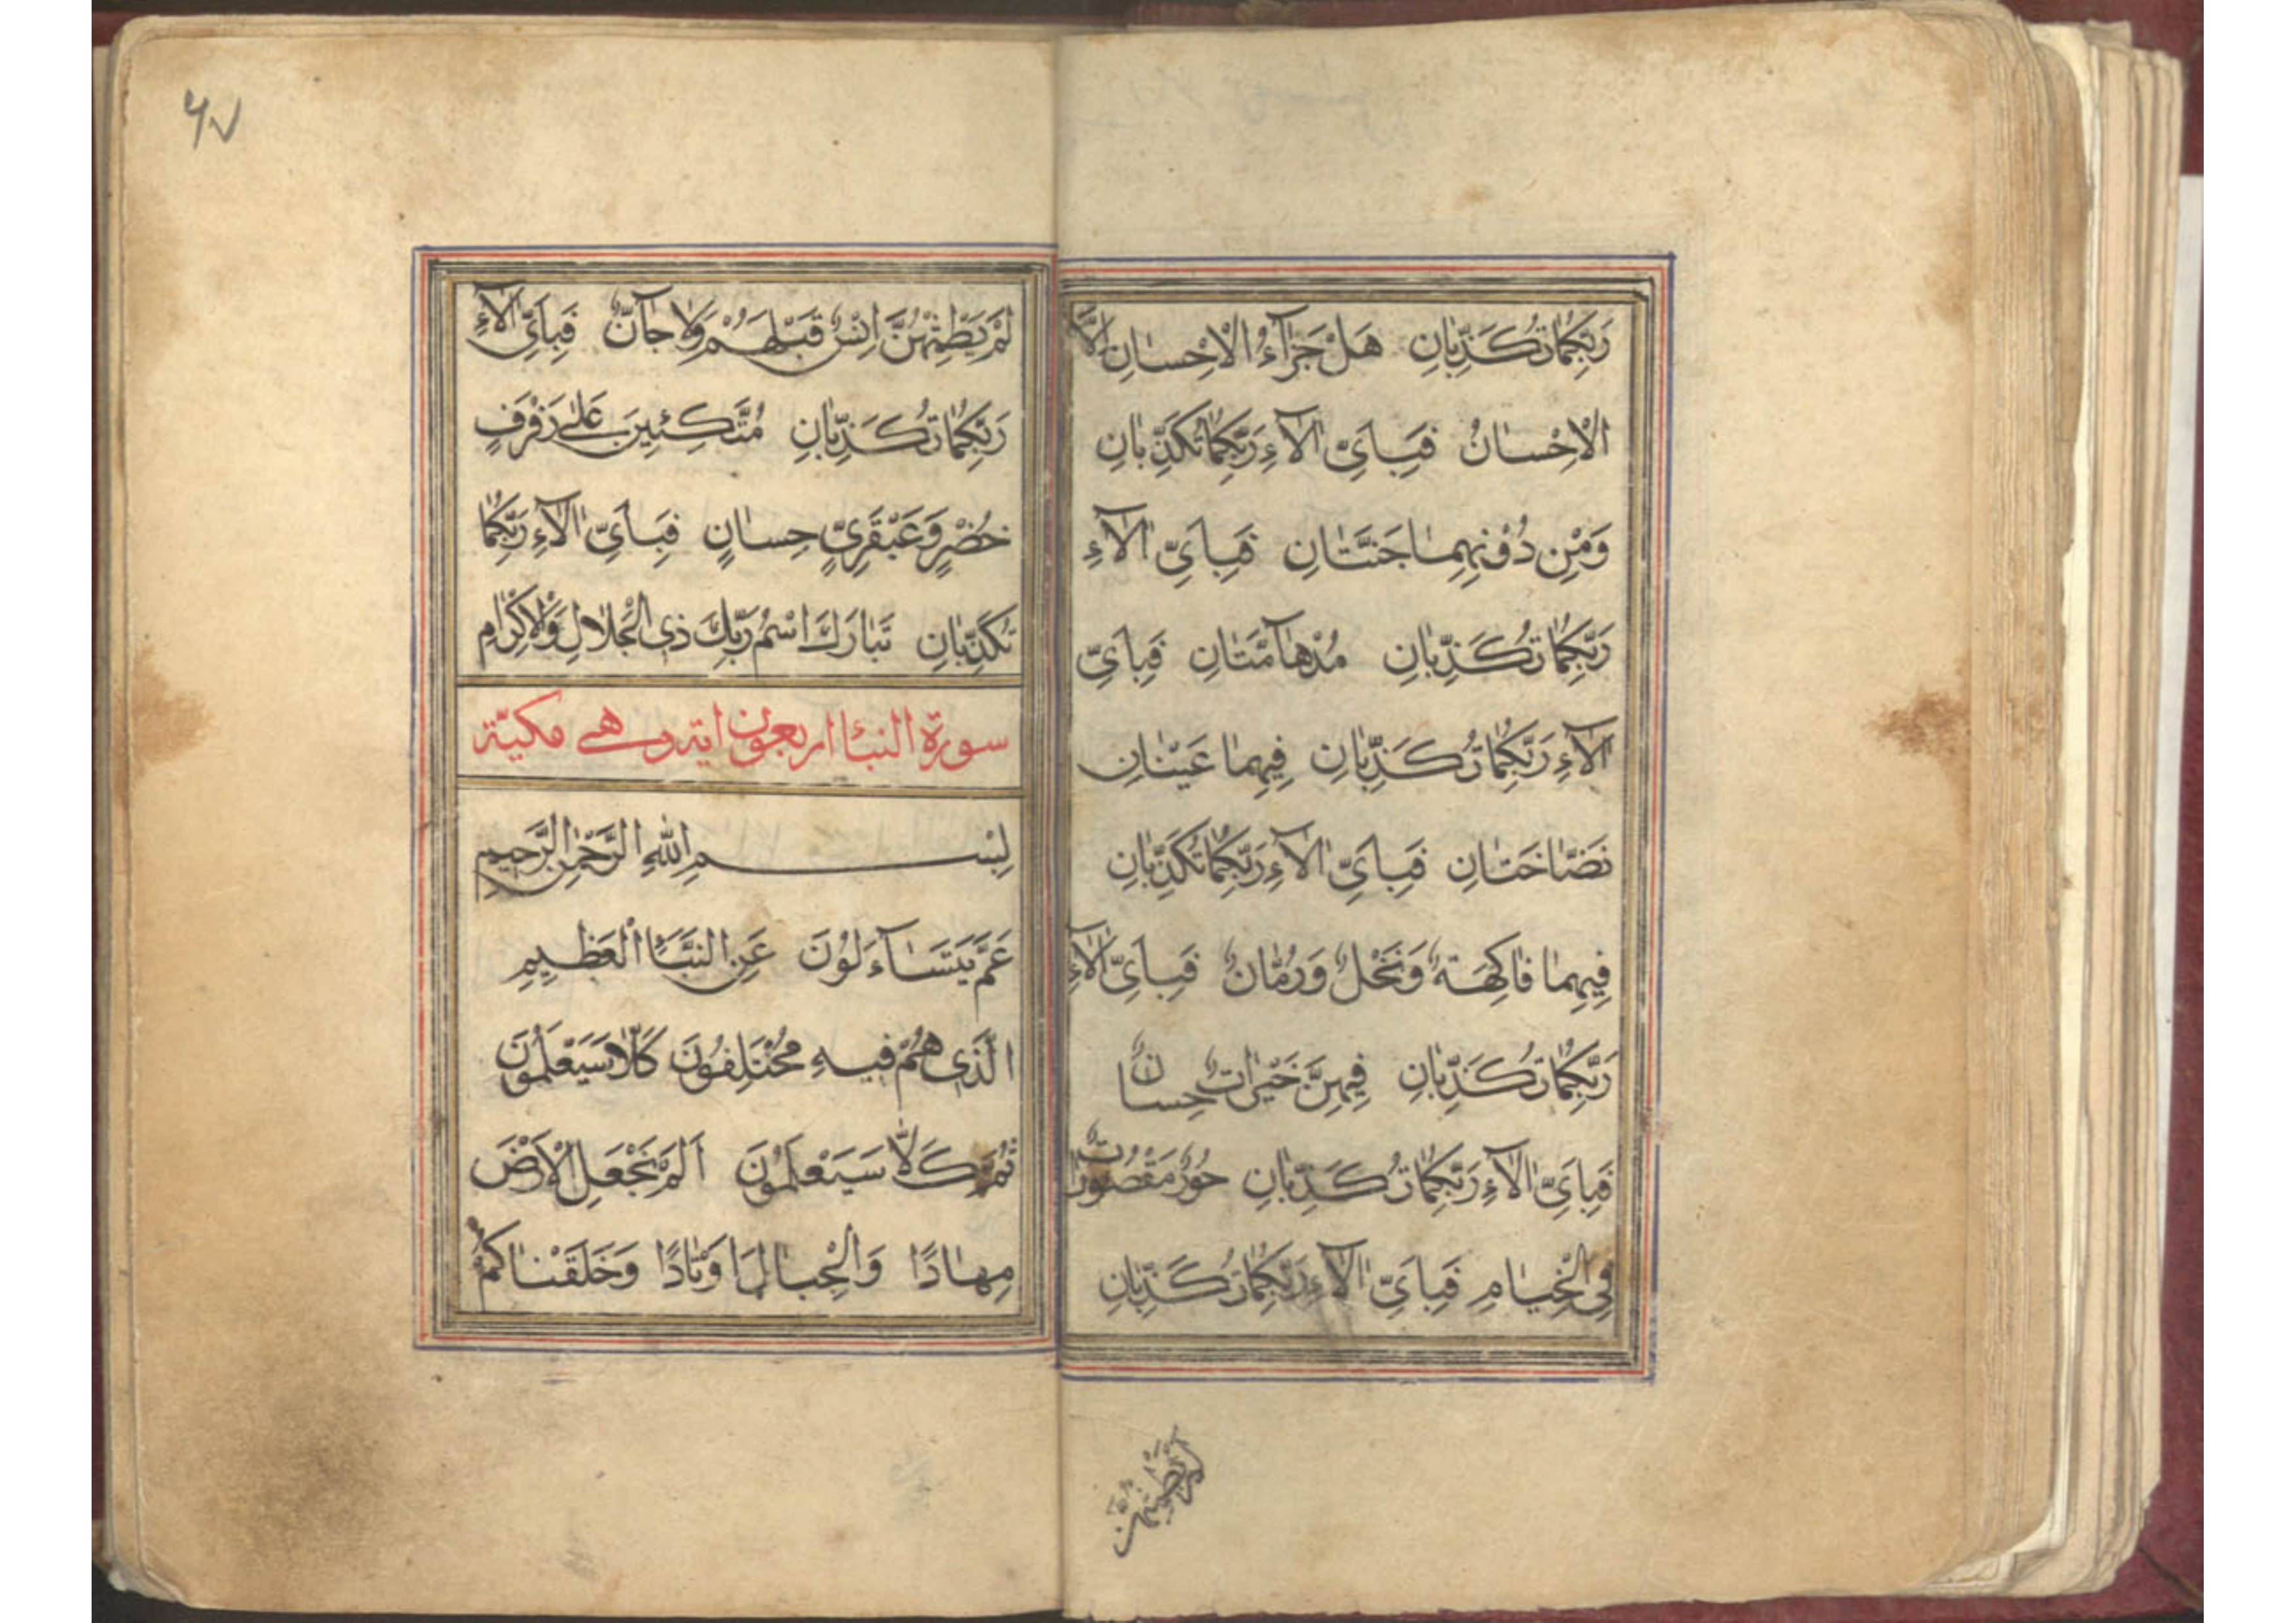 رَبِّكُمَا تُكَذِّبَانِ هَلْ جَزَآءُ الْاِحْسَانِ اِلَّا
الْاِحْسَانُ فَبِاَىِّ اٰلَآءِ رَبِّكُمَا تُكَذِّبَانِ
وَمِنْ دُوْنِهِمَا جَنَّتَانِ فَبِاَىِّ اٰلَآءِ
رَبِّكُمَا تُكَذِّبَانِ مُدْهَآمَّتَانِ فَبِاَىِّ
اٰلَآءِ رَبِّكُمَا تُكَذِّبَانِ فِيهِمَا عَيْنَانِ
نَضَّاخَتَانِ فَبِاَىِّ اٰلَآءِ رَبِّكُمَا تُكَذِّبَانِ
فِيهِمَا فَاكِهَةٌ وَنَخْلٌ وَرُمَّانٌ فَبِاَىِّ اٰلَآءِ
رَبِّكُمَا تُكَذِّبَانِ فِيهِنَّ خَيْرَاتٌ حِسَانٌ
فَبِاَىِّ اٰلَآءِ رَبِّكُمَا تُكَذِّبَانِ حُورٌ مَقْصُورَاتٌ
فِى الْخِيَامِ فَبِاَىِّ اٰلَآءِ رَبِّكُمَا تُكَذِّبَانِ
لَمْ يَطْمِثْهُنَّ
٦٧
لَمْ يَطْمِثْهُنَّ اِنْسٌ قَبْلَهُمْ وَلَا جَآنٌّ فَبِاَىِّ اٰلَآءِ
رَبِّكُمَا تُكَذِّبَانِ مُتَّكِئِينَ عَلٰى رَفْرَفٍ
خُضْرٍ وَعَبْقَرِىٍّ حِسَانٍ فَبِاَىِّ اٰلَآءِ رَبِّكُمَا
تُكَذِّبَانِ تَبَارَكَ اسْمُ رَبِّكَ ذِى الْجَلَالِ وَالْاِكْرَامِ
سورة النبأ اربعون اية وهى مكية
بِسْمِ اللّٰهِ الرَّحْمٰنِ الرَّحِيمِ
عَمَّ يَتَسَآءَلُوْنَ عَنِ النَّبَاِ الْعَظِيمِ
الَّذِى هُمْ فِيهِ مُخْتَلِفُوْنَ كَلَّا سَيَعْلَمُوْنَ
ثُمَّ كَلَّا سَيَعْلَمُوْنَ اَلَمْ نَجْعَلِ الْاَرْضَ
مِهَادًا وَالْجِبَالَ اَوْتَادًا وَخَلَقْنَاكُمْ